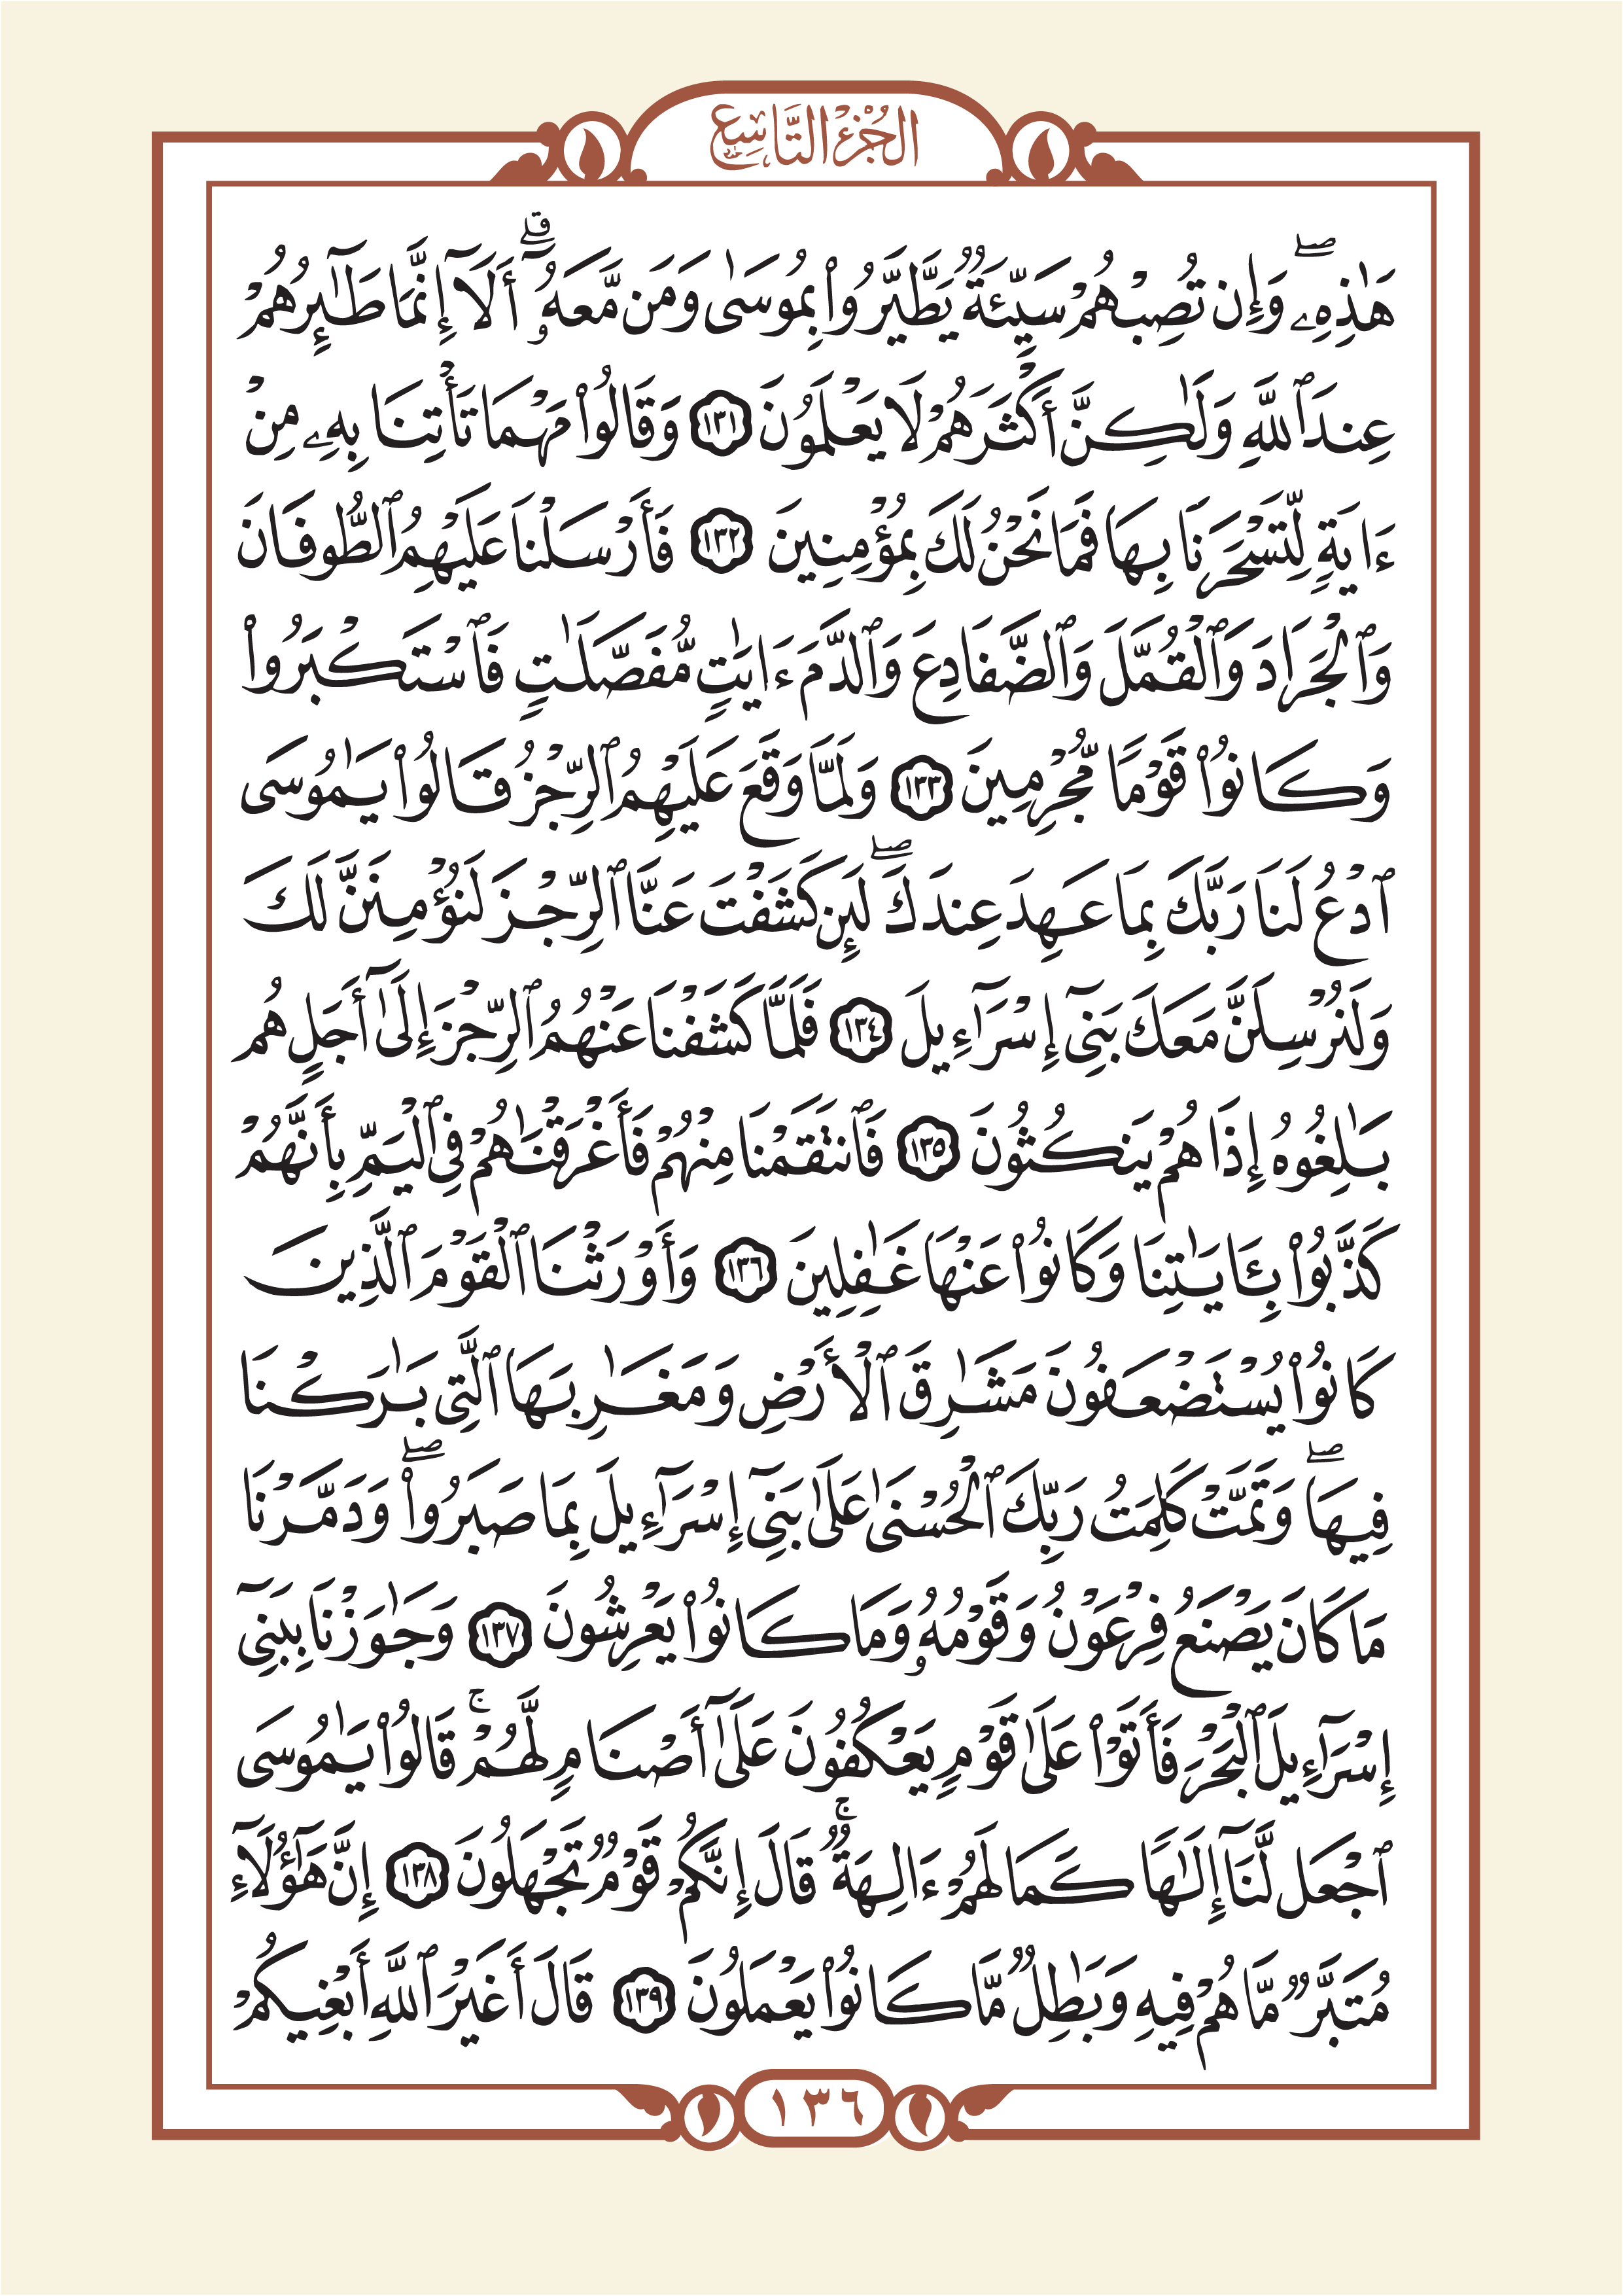 الجُزْءُ التَّاسِعُ
هَٰذِهِۦۖ وَإِن تُصِبْهُمْ سَيِّئَةٌ يَطَّيَّرُواْ بِمُوسَىٰ وَمَن مَّعَهُۥٓۗ أَلَآ إِنَّمَا طَٰٓئِرُهُمْ
عِندَ ٱللَّهِ وَلَٰكِنَّ أَكْثَرَهُمْ لَا يَعْلَمُونَ ١٣١ وَقَالُواْ مَهْمَا تَأْتِنَا بِهِۦ مِنْ
ءَايَةٍ لِّتَسْحَرَنَا بِهَا فَمَا نَحْنُ لَكَ بِمُؤْمِنِينَ ١٣٢ فَأَرْسَلْنَا عَلَيْهِمُ ٱلطُّوفَانَ
وَٱلْجَرَادَ وَٱلْقُمَّلَ وَٱلضَّفَادِعَ وَٱلدَّمَ ءَايَٰتٍ مُّفَصَّلَٰتٍ فَٱسْتَكْبَرُواْ
وَكَانُواْ قَوْمًا مُّجْرِمِينَ ١٣٣ وَلَمَّا وَقَعَ عَلَيْهِمُ ٱلرِّجْزُ قَالُواْ يَٰمُوسَى
ٱدْعُ لَنَا رَبَّكَ بِمَا عَهِدَ عِندَكَۖ لَئِن كَشَفْتَ عَنَّا ٱلرِّجْزَ لَنُؤْمِنَنَّ لَكَ
وَلَنُرْسِلَنَّ مَعَكَ بَنِيٓ إِسْرَٰٓءِيلَ ١٣٤ فَلَمَّا كَشَفْنَا عَنْهُمُ ٱلرِّجْزَ إِلَىٰٓ أَجَلٍ هُم
بَٰلِغُوهُ إِذَا هُمْ يَنكُثُونَ ١٣٥ فَٱنتَقَمْنَا مِنْهُمْ فَأَغْرَقْنَٰهُمْ فِي ٱلْيَمِّ بِأَنَّهُمْ
كَذَّبُواْ بِـَٔايَٰتِنَا وَكَانُواْ عَنْهَا غَٰفِلِينَ ١٣٦ وَأَوْرَثْنَا ٱلْقَوْمَ ٱلَّذِينَ
كَانُواْ يُسْتَضْعَفُونَ مَشَٰرِقَ ٱلْأَرْضِ وَمَغَٰرِبَهَا ٱلَّتِي بَٰرَكْنَا
فِيهَاۖ وَتَمَّتْ كَلِمَتُ رَبِّكَ ٱلْحُسْنَىٰ عَلَىٰ بَنِيٓ إِسْرَٰٓءِيلَ بِمَا صَبَرُواْۖ وَدَمَّرْنَا
مَا كَانَ يَصْنَعُ فِرْعَوْنُ وَقَوْمُهُۥ وَمَا كَانُواْ يَعْرِشُونَ ١٣٧ وَجَٰوَزْنَا بِبَنِيٓ
إِسْرَٰٓءِيلَ ٱلْبَحْرَ فَأَتَوْاْ عَلَىٰ قَوْمٍ يَعْكُفُونَ عَلَىٰٓ أَصْنَامٍ لَّهُمْۚ قَالُواْ يَٰمُوسَى
ٱجْعَل لَّنَآ إِلَٰهًا كَمَا لَهُمْ ءَالِهَةٌۚ قَالَ إِنَّكُمْ قَوْمٌ تَجْهَلُونَ ١٣٨ إِنَّ هَٰٓؤُلَآءِ
مُتَبَّرٌ مَّا هُمْ فِيهِ وَبَٰطِلٌ مَّا كَانُواْ يَعْمَلُونَ ١٣٩ قَالَ أَغَيْرَ ٱللَّهِ أَبْغِيكُمْ
١٣٦